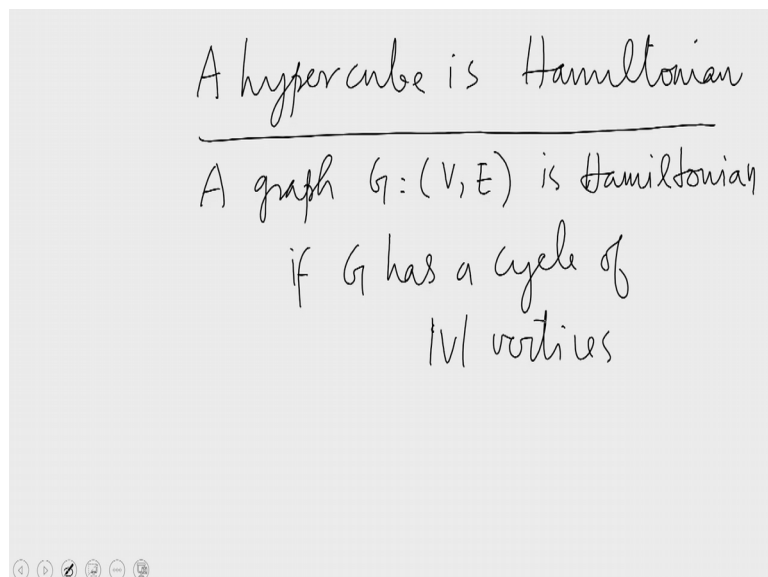 A hypercube is Hamiltonian
A graph G:(V,E) is Hamiltonian
if G has a cycle of
|V| vertices